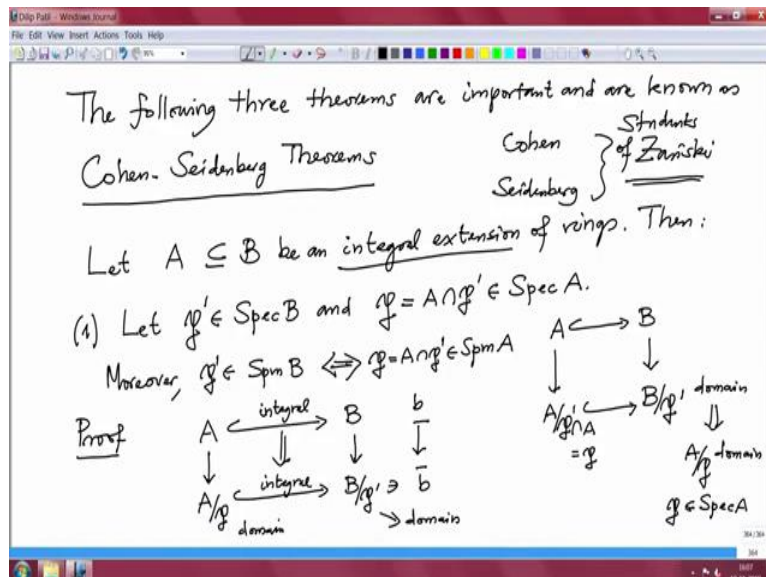 Dilip Patil - Windows Journal
File Edit View Insert Actions Tools Help
The following three theorems are important and are known as
Cohen-Seidenberg Theorems
Cohen
Seidenberg
} Students of Zariski
Let A ⊆ B be an integral extension of rings. Then:
(1) Let 𝔭' ∈ Spec B and 𝔭 = A∩𝔭' ∈ Spec A.
Moreover, 𝔭' ∈ Spm B ⟺ 𝔭 = A∩𝔭' ∈ Spm A
A ↪ B
↓ ↓
A/𝔭'∩A ↪ B/𝔭' domain
= 𝔭
⇓
A/𝔭 domain
𝔭 ∈ Spec A
Proof
A ↪ integral B b
↓ ⇓ ↓ ↓
A/𝔭 ↪ integral B/𝔭' ∋ b̄
domain → domain
364/364
364
16:07